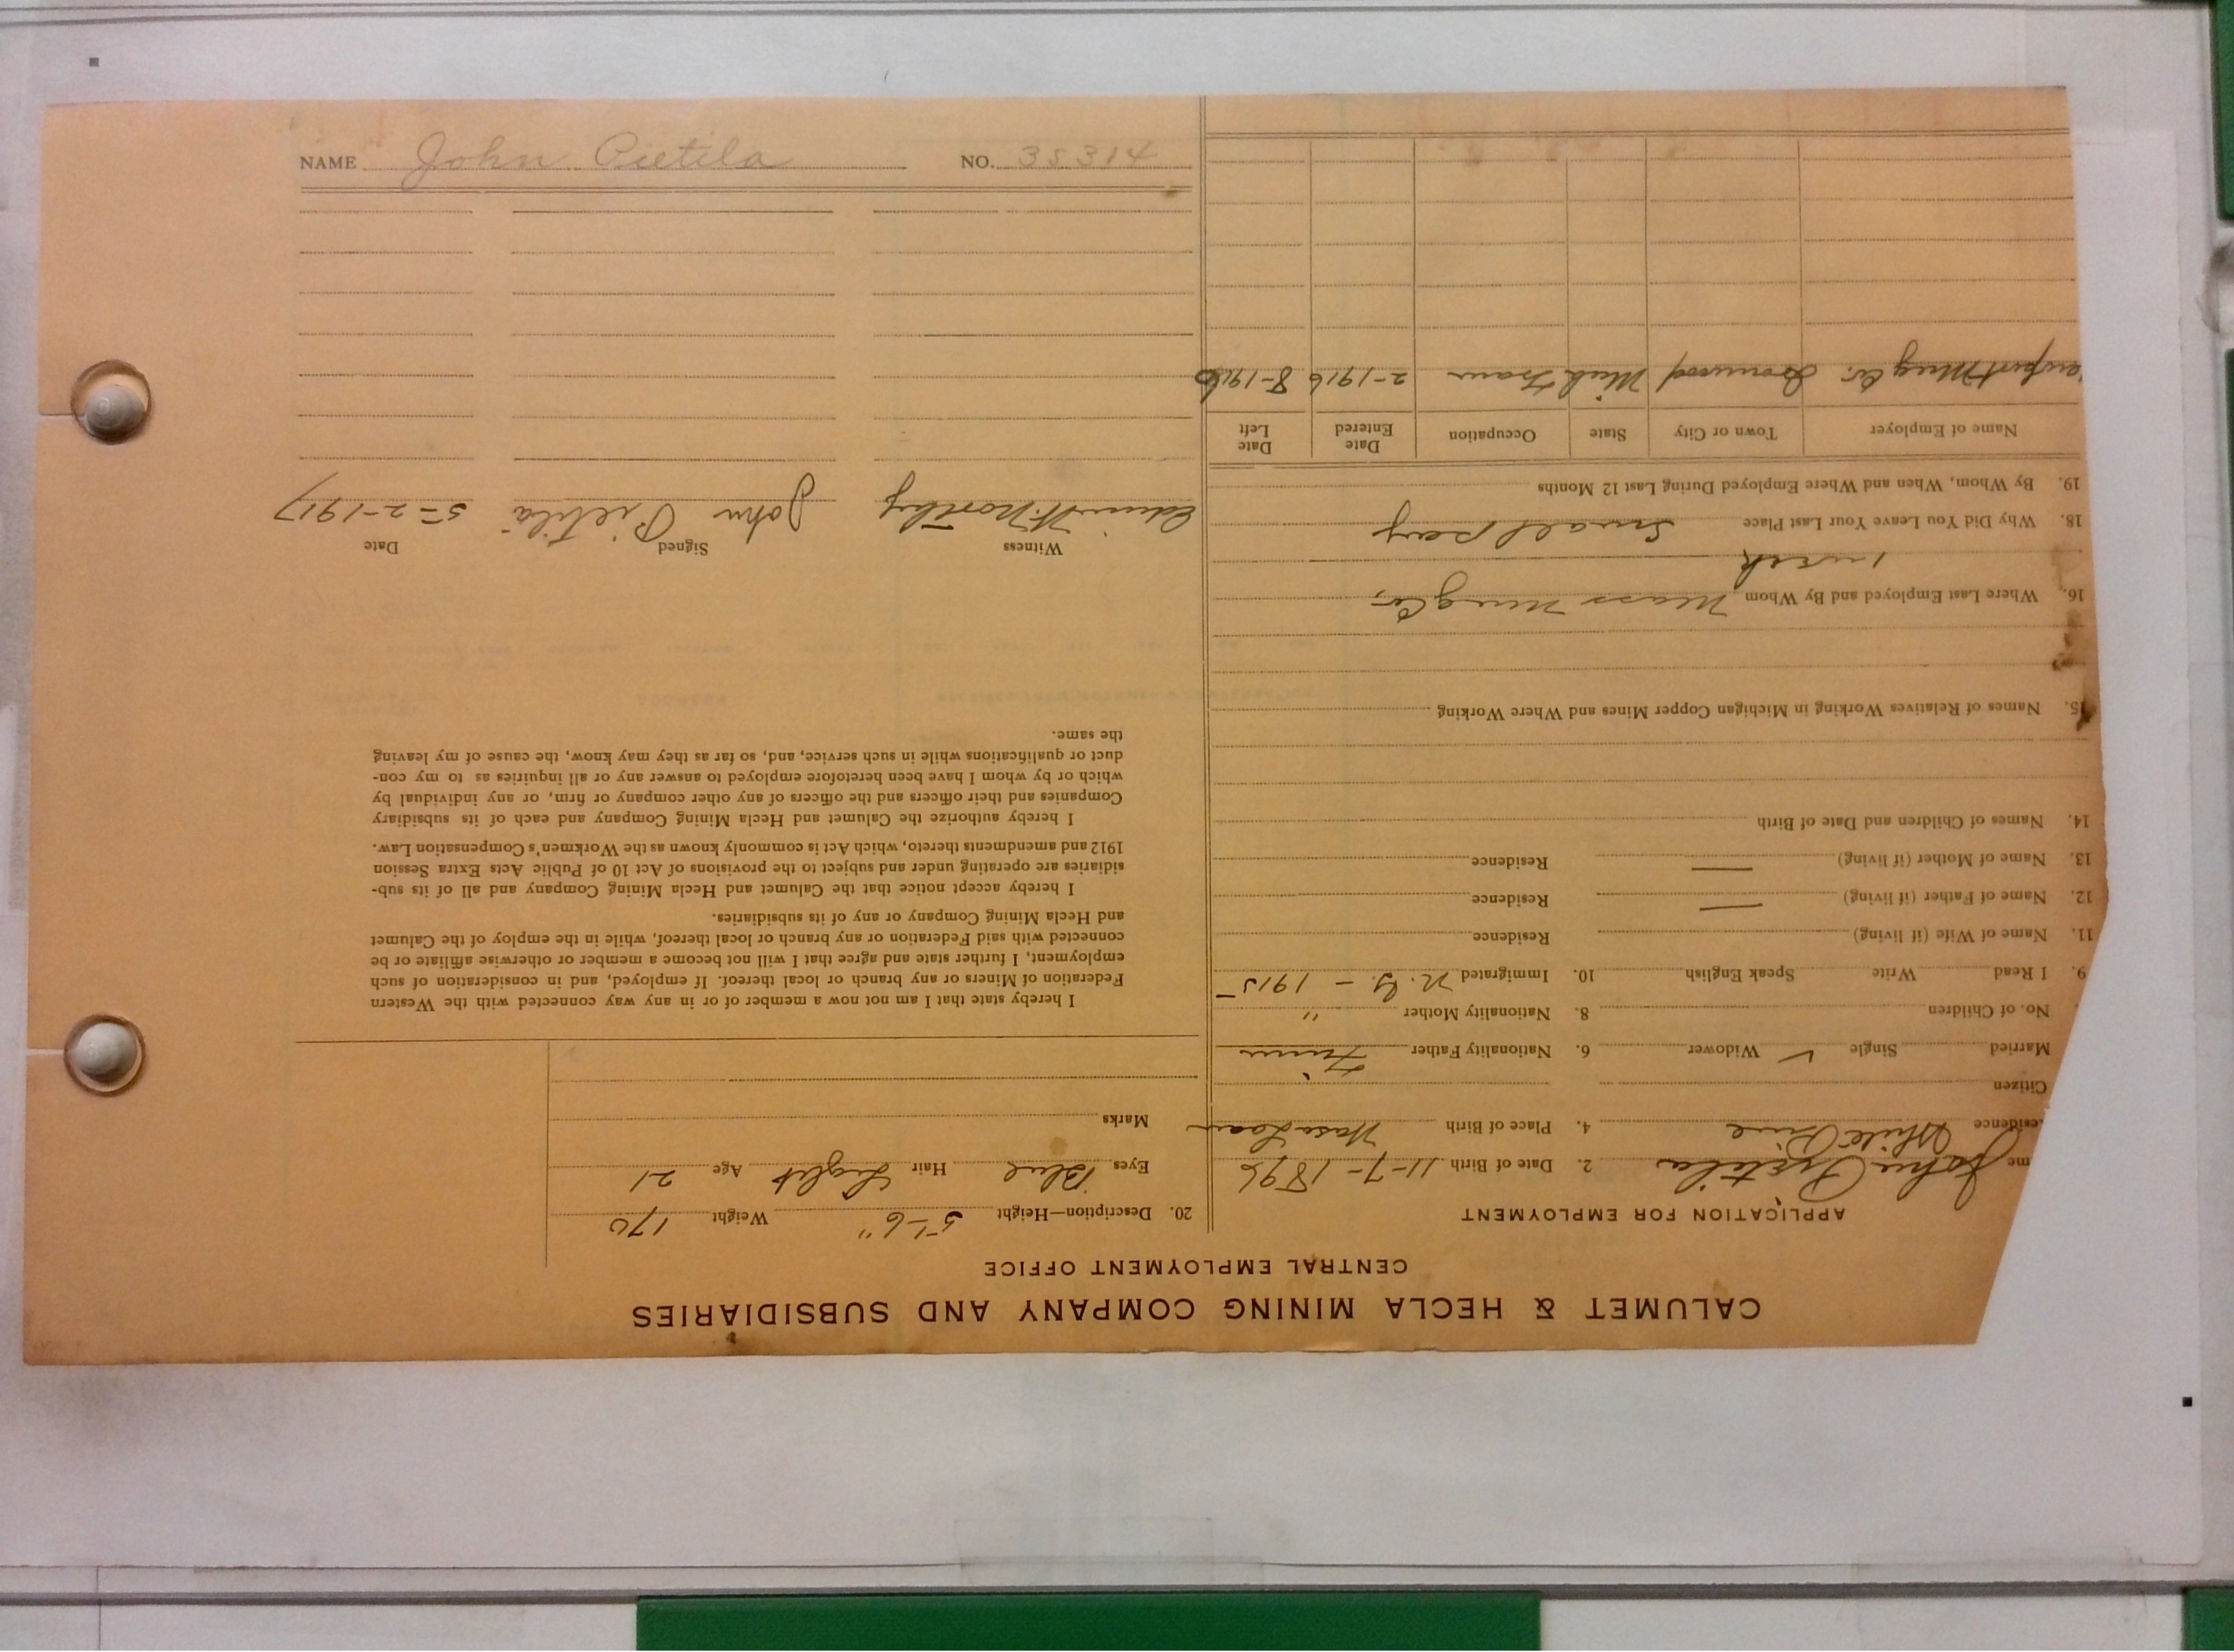 CALUMET & HECLA MINING COMPANY AND SUBSIDIARIES
CENTRAL EMPLOYMENT OFFICE
APPLICATION FOR EMPLOYMENT
me John Pietila 2. Date of Birth 11-7-1896
esidence White Pine 4. Place of Birth Wasa Laani
Citizen
Married Single ✓ Widower 6. Nationality Father Finn
No. of Children 8. Nationality Mother "
9. I Read Write Speak English 10. Immigrated N.Y. - 1915
11. Name of Wife (if living) Residence
12. Name of Father (if living) — Residence
13. Name of Mother (if living) — Residence
14. Names of Children and Date of Birth
15. Names of Relatives Working in Michigan Copper Mines and Where Working
16. Where Last Employed and By Whom Mass Mng Co.
1 week
18. Why Did You Leave Your Last Place Small pay
19. By Whom, When and Where Employed During Last 12 Months
Name of Employer Town or City State Occupation Date Entered Date Left
ewport Mng Co. Ironwood Mich Tram 2-1916 8-1916
20. Description—Height 5'-6" Weight 170
Eyes Blue Hair Light Age 21
Marks
I hereby state that I am not now a member of or in any way connected with the Western
Federation of Miners or any branch or local thereof. If employed, and in consideration of such
employment, I further state and agree that I will not become a member or otherwise affiliate or be
connected with said Federation or any branch or local thereof, while in the employ of the Calumet
and Hecla Mining Company or any of its subsidiaries.
I hereby accept notice that the Calumet and Hecla Mining Company and all of its sub-
sidiaries are operating under and subject to the provisions of Act 10 of Public Acts Extra Session
1912 and amendments thereto, which Act is commonly known as the Workmen's Compensation Law.
I hereby authorize the Calumet and Hecla Mining Company and each of its subsidiary
Companies and their officers and the officers of any other company or firm, or any individual by
which or by whom I have been heretofore employed to answer any or all inquiries as to my con-
duct or qualifications while in such service, and, so far as they may know, the cause of my leaving
the same.
Witness Signed Date
Edwin H. Northey John Pietila 5-2-1917
NAME John Pietila NO. 35314